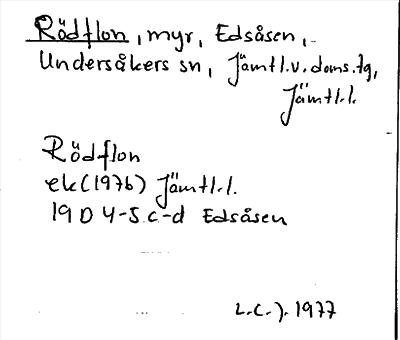 Rödflon, myr, Edsåsen,
Undersåkers sn, Jämtl.v.doms.tg,
Jämtl.l.
Rödflon
ek(1976) Jämtl.l.
19D 4-5 c-d Edsåsen
L.C.J. 1977